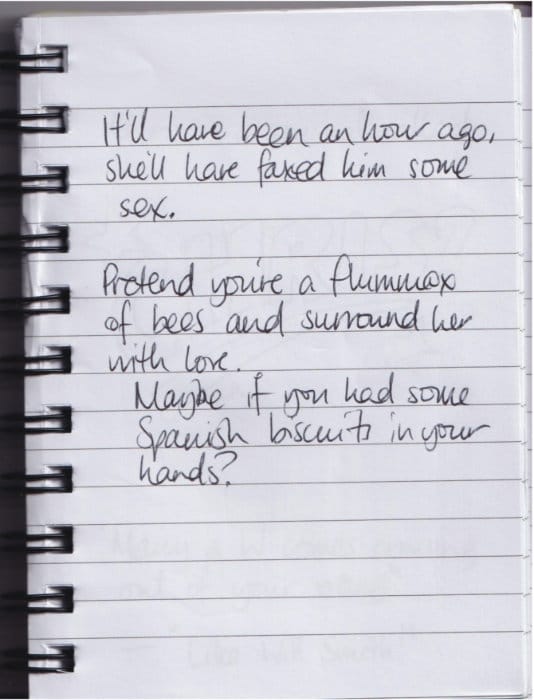 It'll have been an hour ago,
she'll have faxed him some
sex.
Pretend you're a flummox
of bees and surround her
with love.
Maybe if you had some
Spanish biscuits in your
hands?